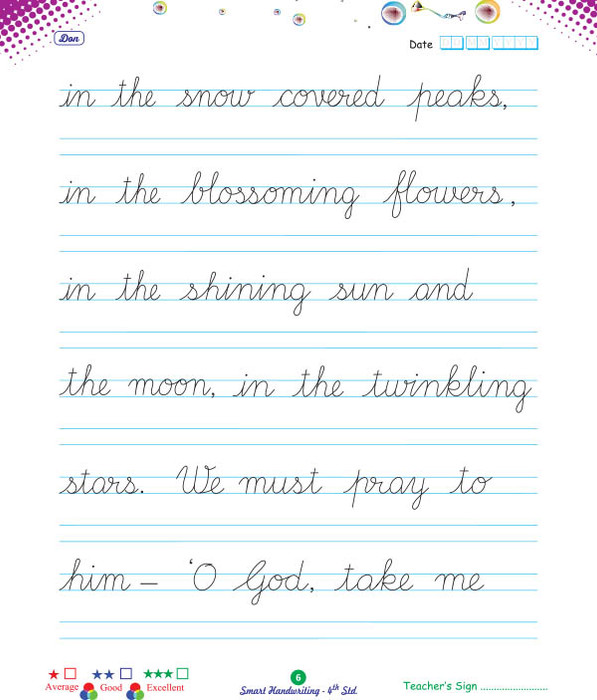 Don
Date DD MM YYYY
in the snow covered peaks,
in the blossoming flowers,
in the shining sun and
the moon, in the twinkling
stars. We must pray to
him – 'O God, take me
Average Good Excellent
6
Smart Handwriting - 4th Std.
Teacher's Sign ........................